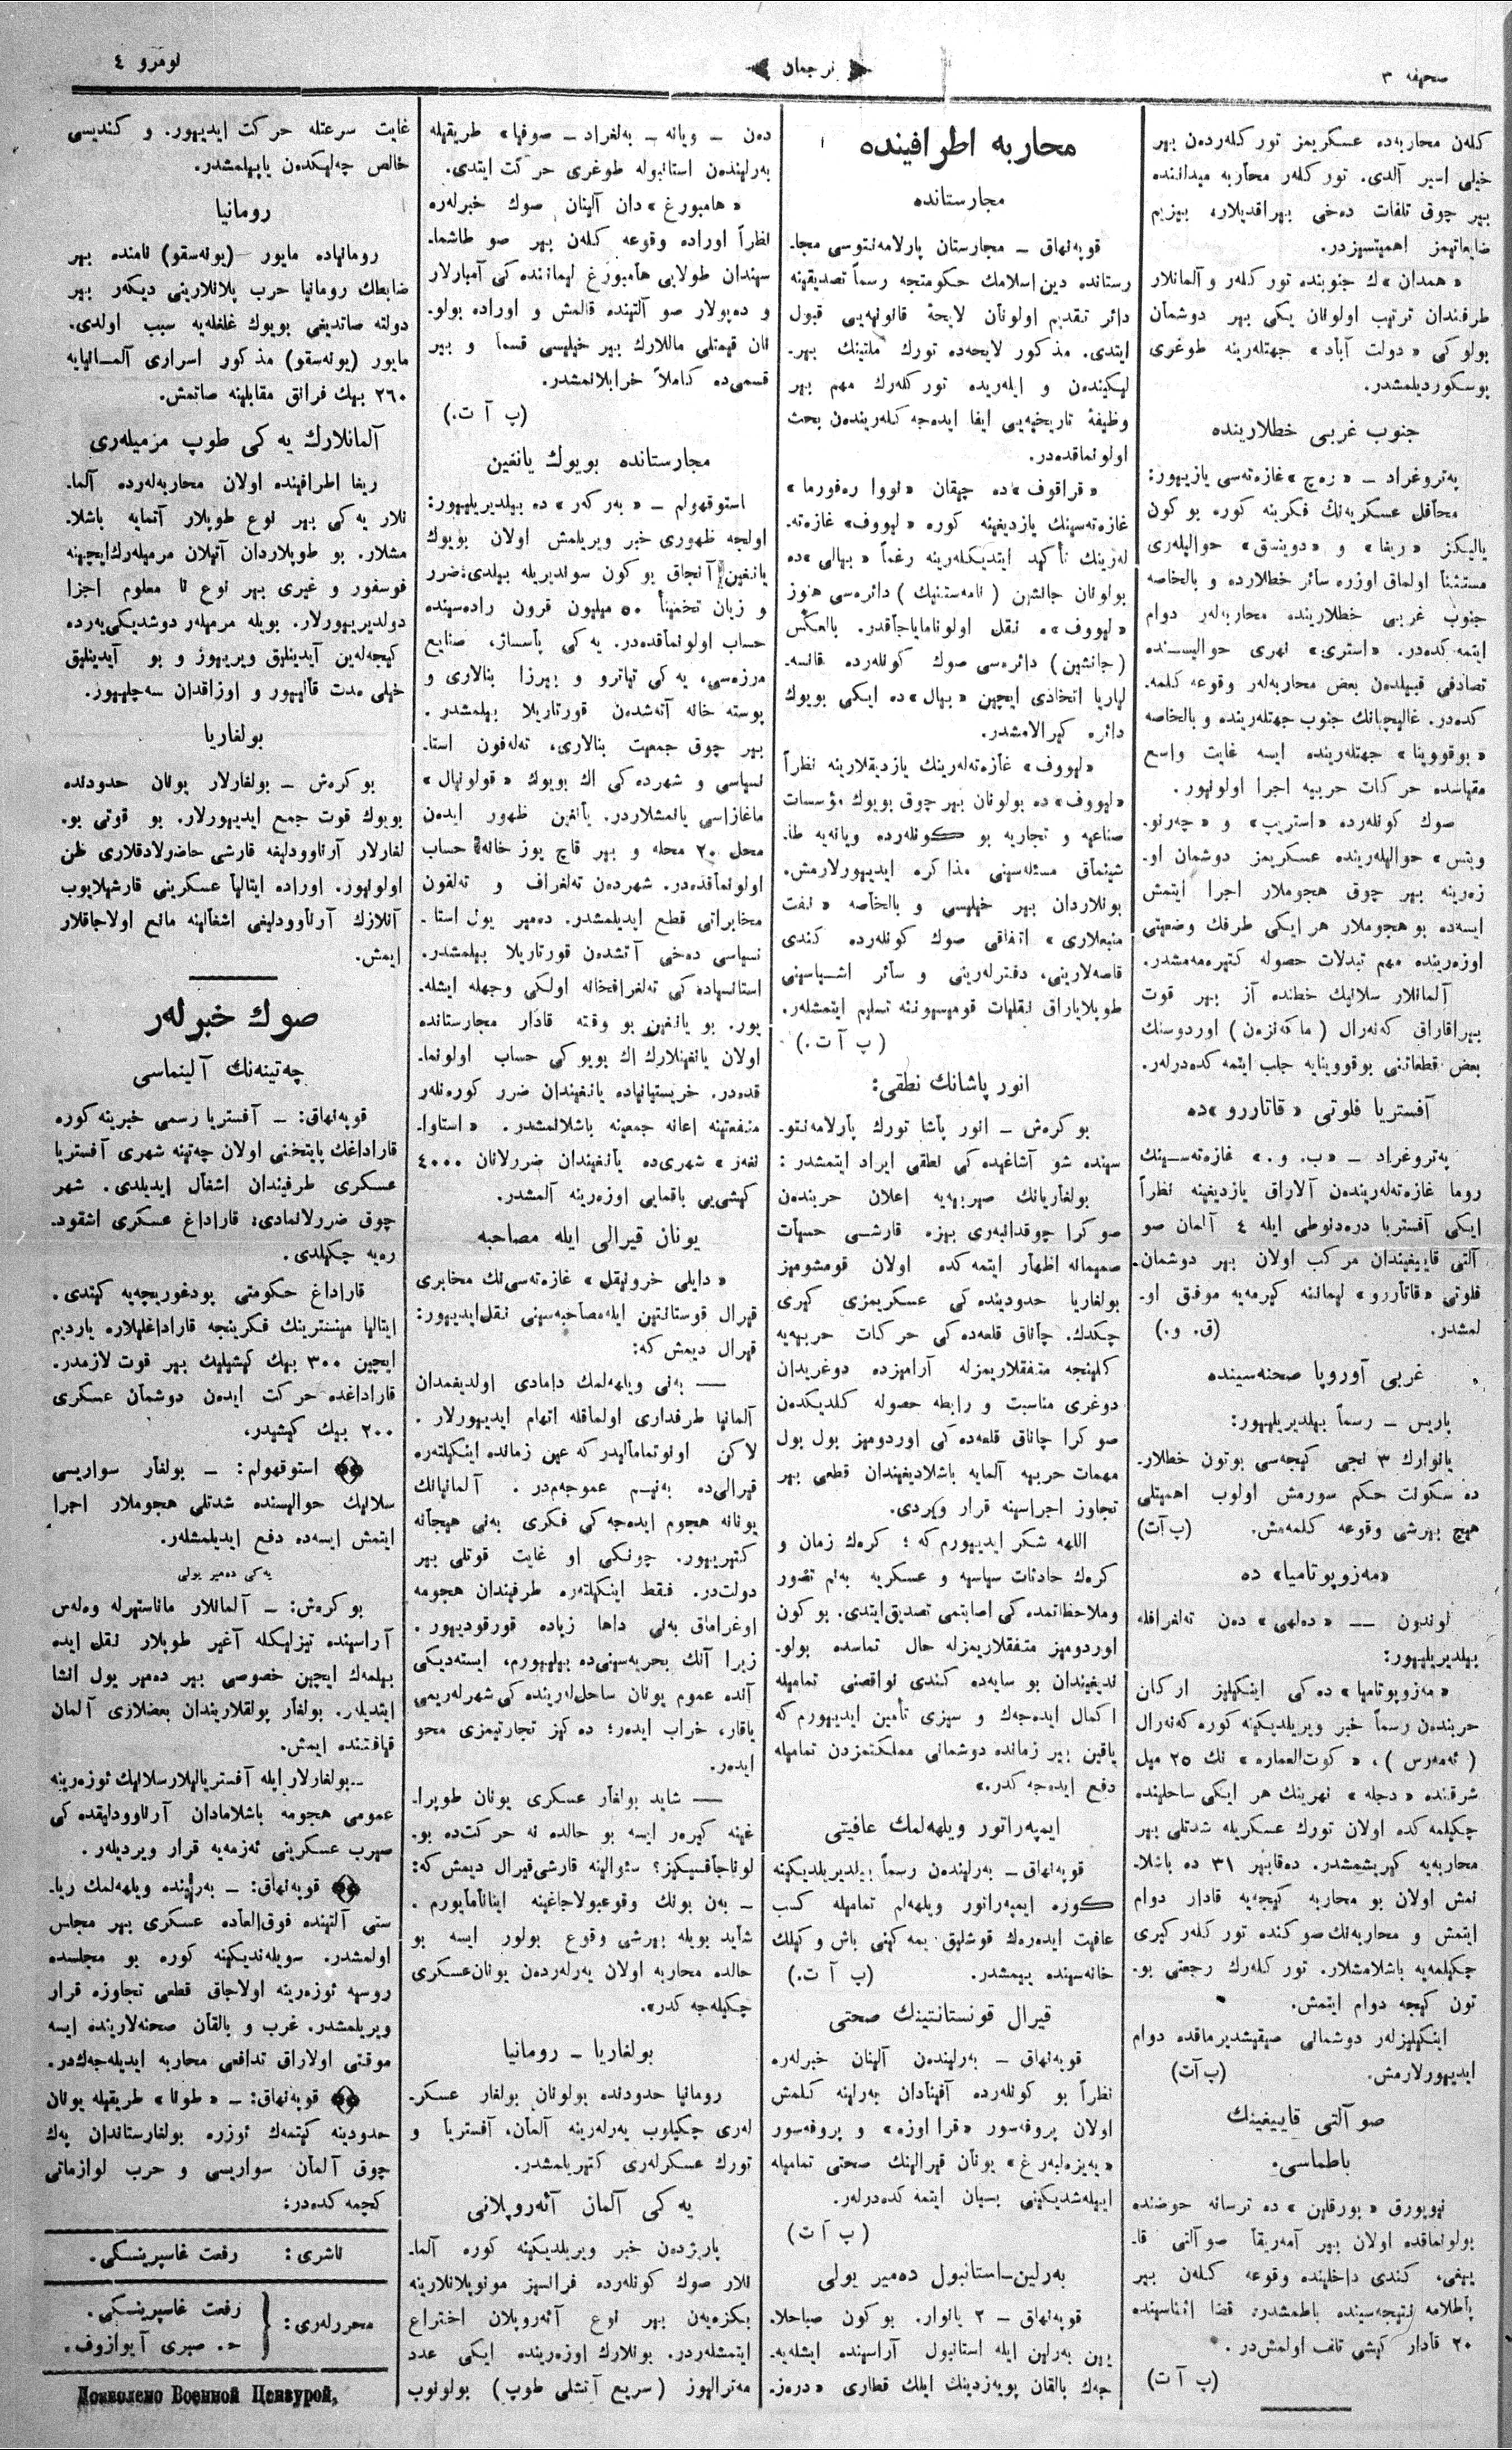 صحیفه ٣
ترجمان
نومرو ٤
كلەن محاربەده عسكریمز توركلەردن بیر
خیلی اسیر آلدی. توركلەر محاربه میداننده
بیر چوق تلفات دەخی بیراقدیلار، بیزیم
ضایعاتیمز اهمیتسیزدر.
« همدان »ك جنوبنده توركلەر و آلمانلار
طرفندان ترتیب اولونان یكی بیر دوشمان
بولوكی « دولت آباد » جهتلەرینه طوغری
پوسكوردیلمشدر.
جنوب غربی خطلارینده
پەتروغراد ــ « رەچ » غازەتەسی یازییور:
محافل عسكریەنك فكرینه كوره بو كون
یالیكز « ریغا » و « دوینسق » حوالیلەری
مستثنأ اولماق اوزره سائر خطلارده و بالخاصه
جنوب غربی خطلارینده محاربەلەر دوام
ایتمەكدەدر. «استری» نهری حوالیسنده
تصادفی قبیلدەن بعض محاربەلەر وقوعه كلمە-
كدەدر. غالیچیانك جنوب جهتلەرینده و بالخاصه
« بوقووینا » جهتلەرینده ایسه غایت واسع
مقیاسده حركات حربیه اجرا اولونیور.
صوك كونلەرده « استریپ » و « چەرنو-
ویتس » حوالیلەرینده عسكریمز دوشمان او-
زەرینه بیر چوق هجوملار اجرا ایتمش
ایسەده بو هجوملار هر ایكی طرفك وضعیتی
اوزەرینده مهم تبدلات حصوله كتیرمەمشدر.
آلمانلار سلانیك خطنده آز بیر قوت
بیراقاراق كەنەرال ( ماكەنزەن ) اوردوسنك
بعض قطعاتنی بوقووینایه جلب ایتمەكدەدرلەر.
آفستریا فلوتی « قاتاررو »ده
پەتروغراد ــ « ب. و. » غازەتەسینك
روما غازەتەلەریندەن آلاراق یازدیغینه نظراً
ایكی آفستریا درەدنوطی ایله ٤ آلمان صو
آلتی قاییغیندان مركب اولان بیر دوشمان-
فلوتی « قاتاررو » لیماننه كیرمەیه موفق او-
لمشدر. (ق. و.)
غربی آوروپا صحنەسینده
پاریس ــ رسماً بیلدیریلییور:
یانوارك ٣ نجی كیجەسی بوتون خطلار-
ده سكونت حكم سورمش اولوب اهمیتلی
هیچ بیرشی وقوعه كلمەمش. (پ آ ت)
«مەزوپوتامیا» ده
لوندون ــ « دەلهی » دەن تەلغرافله
بیلدیریلییور:
« مەزوپوتامیا » دەكی اینكیلیز اركان
حربندەن رسماً خبر ویریلدیكینه كوره كەنەرال
( ئەمەرس ) ، « كوت‌العماره » نك ٢٥ میل
شرقنده « دجله » نهرینك هر ایكی ساحلینده
چكیلمەكده اولان تورك عسكریله شدتلی بیر
محاربەیه كیریشمشدر. دەقابیر ٣١ ده باشلا-
نمش اولان بو محاربه كیجەیه قادار دوام
ایتمش و محاربەنك صوكنده توركلەر كیری
چكیلمەیه باشلامشلار. توركلەرك رجعتی بو-
تون كیجه دوام ایتمش.
اینكیلیزلەر دوشمانی صیقیشدیرماقده دوام
ایدییورلارمش. (پ آ ت)
صو آلتی قاییغینك
باطماسی.
نیویورق « بورقلین » ده ترسانه حوضنده
بولونماقده اولان بیر آمەریقا صو آلتی قا-
ییغی، كندی داخلینده وقوعه كلەن بیر
پاطلامه نتیجەسینده باطمشدر. قضا اثناسینده
٢٠ قادار كیشی تلف اولمش‌در.
(پ آ ت)
محاربه اطرافینده
مجارستانده
قوپەنهاق ــ مجارستان پارلامەنتوسی مجا-
رستانده دین اسلامك حكومتجه رسماً تصدیقینه
دائر تقدیم اولونان لایحهٔ قانونیەیی قبول
ایتدی. مذكور لایحەده تورك ملتینك بیر-
لیكیندەن و ایلەریده توركلەرك مهم بیر
وظیفهٔ تاریخیەیی ایفا ایدەجەكلەریندەن بحث
اولونماقدەدر.
« قراقوف »ده چیقان « نووا رەفورما »
غازەتەسینك یازدیغینه كوره « لیووف » غازەتە-
لەرینك تأكید ایتدیكلەرینه رغماً « بیالی »ده
بولونان جانشین ( نامەستنیك ) دائرەسی هنوز
« لیووف »ه نقل اولونامایاجاقدر. بالعكس
(جانشین) دائرەسی صوك كونلەرده قانسە-
لیاریا اتخاذی ایچین « بیال »ده ایكی بویوك
دائره كیرالامشدر.
« لیووف » غازەتەلەرینك یازدیقلارینه نظراً
« لیووف » ده بولونان بیر چوق بویوك مؤسسات
صناعیه و تجاریه بو كونلەرده ویانەیه طا-
شینماق مسئلەسینی مذاكره ایدییورلارمش.
بونلاردان بیر خیلیسی و بالخاصه « نفت
منبعلاری » اتفاقی صوك كونلەرده كندی
قاصەلارینی، دفترلەرینی و سائر اشیاسینی
طوپلایاراق نقلیات قومیسیوننه تسلیم ایتمشلەر.
(پ آ ت.)
انور پاشانك نطقی:
بوكرەش ــ انور پاشا تورك پارلامەنتو-
سینده شو آشاغیدەكی نطقی ایراد ایتمشدر :
بولغاریانك صربیەیه اعلان حربندەن
صوكرا چوقدانبەری بیزه قارشی حسیات
صمیمانه اظهار ایتمەكده اولان قومشومیز
بولغاریا حدودیندەكی عسكریمزی كیری
چكدك. چاناق قلعەدەكی حركات حربیەیه
كلینجه متفقلاریمزله آرامیزده دوغریدان
دوغری مناسبت و رابطه حصوله كلدیكدەن
صوكرا چاناق قلعەدەكی اوردومیز بول بول
مهمات حربیه آلمایه باشلادیغیندان قطعی بیر
تجاوز اجراسینه قرار ویردی.
اللهه شكر ایدییورم كه ؛ كرەك زمان و
كرەك حادثات سیاسیه و عسكریه بەنم تصور
وملاحظاتمدەكی اصابتمی تصدیق ایتدی. بو كون
اوردومیز متفقلاریمزله حال تماسده بولو-
ندیغیندان بو سایەده كندی نواقصنی تمامیله
اكمال ایدەجەك و سیزی تأمین ایدییورم كه
یاقین بیر زمانده دوشمانی مملكتمزدن تمامیله
دفع ایدەجەكدر.»
ایمپەراتور ویلهەلمك عافیتی
قوپەنهاق ــ بەرلیندەن رسماً بیلدیریلدیكینه
كوره ایمپەراتور ویلهەلم تمامیله كسب
عافیت ایدەرەك قوشلیق یمەكینی باش وكیلك
خانەسینده ییمشدر. (پ آ ت.)
قیرال قونستانتینك صحتی
قوپەنهاق ــ بەرلیندەن آلینان خبرلەره
نظراً بو كونلەرده آفینادان بەرلینه كلمش
اولان پروفەسور « قرا اوزه » و پروفەسور
« یەیزەلبەرغ » یونان قیرالینك صحتی تمامیله
اییلەشدیكینی بیان ایتمەكدەدرلەر.
(پ آ ت)
بەرلین-استانبول دەمیر یولی
قوپەنهاق ــ ٢ یانوار. بو كون صباحلا-
یین بەرلین ایله استانبول آراسینده ایشلەیە-
جەك بالقان پویەزدینك ایلك قطاری « درەز-
دەن ــ ویانه ــ بەلغراد ــ صوفیا » طریقیله
بەرلیندەن استانبوله طوغری حركت ایتدی.
« هامبورغ » دان آلینان صوك خبرلەره
نظراً اوراده وقوعه كلەن بیر صو طاشما-
سیندان طولایی هامبورغ لیمانندەكی آمبارلار
و دەپولار صو آلتینده قالمش و اوراده بولو-
نان قیمتلی ماللارك بیر خیلیسی قسماً و بیر
قسمی‌ده كاملاً خرابلانمشدر.
(پ آ ت.)
مجارستانده بویوك یانغین
استوقهولم ــ « بەركەر » ده بیلدیریلییور:
اولجه ظهوری خبر ویریلمش اولان بویوك
یانغین آنجاق بو كون سوندیریله بیلدی. ضرر
و زیان تخمینأ ٥٠ میلیون قرون رادەسینده
حساب اولونماقدەدر. یەكی پاساژ، صنایع
مرزەسی، یەكی تیاترو و بیرزا بنالاری و
پوسته خانه آتەشدەن قورتاریلا بیلمشدر.
بیر چوق جمعیت بنالاری، تەلەفون استا-
نسیاسی و شهردەكی اك بویوك « قولونیال »
ماغازاسی یانمشلاردر. یانغین ظهور ایدەن
محل ٢٠ محله و بیر قاچ یوز خانه حساب
اولونماقدەدر. شهردەن تەلغراف و تەلفون
مخابراتی قطع ایدیلمشدر. دەمیر یول استا-
نسیاسی دەخی آتشدەن قورتاریلا بیلمشدر.
استانسیادەكی تەلغرافخانه اولكی وجهله ایشلە-
یور. بو یانغین بو وقته قادار مجارستانده
اولان یانغینلارك اك بویوكی حساب اولونما-
قدەدر. خریستیانیاده یانغیندان ضرر كورەنلەر
منفعتینه اعانه جمعینه باشلانمشدر. « استاوا-
نغەر » شهری‌ده یانغیندان ضررلانان ٤٠٠٠
كیشی‌یی باقمایی اوزەرینه آلمشدر.
یونان قیرالی ایله مصاحبه
« دایلی خرونیقل » غازەتەسی‌نك مخابری
قیرال قوستانتین ایله مصاحبەسینی نقل ایدییور:
قیرال دیمش كه:
ــ بەنی ویلهەلمك دامادی اولدیغمدان
آلمانیا طرفداری اولماقله اتهام ایدییورلار.
لاكن اونوتمامالیدر كه عین زمانده اینكیلتەره
قیرالی‌ده بەنیم عموجەم‌در. آلمانیانك
یونانه هجوم ایدەجەكی فكری بەنی هیجانه
كتیریور. چونكی او غایت قوتلی بیر
دولت‌در. فقط اینكیلتەره طرفیندان هجومه
اوغراماق بەنی داها زیاده قورقودیور.
زیرا آنك بحریەسینی‌ده بیلییورم، ایستەدیكی
آنده عموم یونان ساحللەریندەكی شهرلەریمی
یاقار، خراب ایدەر؛ دەكیز تجارتیمزی محو
ایدەر.
ــ شاید بولغار عسكری یونان طوپرا-
غینه كیرەر ایسه بو حالده نه حركت‌ده بو-
لوناجاقسیكیز؟ سئوالینه قارشی قیرال دیمش كه:
ــ بەن بونك وقوعبولاجاغینه اینانامایورم.
شاید بویله بیرشی وقوع بولور ایسه بو
حالده محاربه اولان یەرلەردەن یونان عسكری
چكیلەجەكدر».
بولغاریا ــ رومانیا
رومانیا حدودنده بولونان بولغار عسكر-
لەری چكیلوب یەرلەرینه آلمان، آفستریا و
تورك عسكرلەری كتیریلمشدر.
یەكی آلمان آئەروپلانی
پاریژدەن خبر ویریلدیكینه كوره آلما-
نلار صوك كونلەرده فرانسیز مونوپلانلارینه
بكزەیەن بیر نوع آئەروپلان اختراع
ایتمشلەردر. بونلارك اوزەرینده ایكی عدد
مەترالیوز (سریع آتشلی طوپ) بولونوب
غایت سرعتله حركت ایدییور. و كندیسی
خالص چەلیكدەن یاپیلمشدر.
رومانیا
رومانیاده مایور (یونەسقو) نامنده بیر
ضابطك رومانیا حرب پلانلارینی دیكەر بیر
دولته صاتدیغی بویوك غلغلەیه سبب اولدی.
مایور (یونەسقو) مذكور اسراری آلمانیایه
٢٦٠ بیك فرانق مقابلینه صاتمش.
آلمانلارك یەكی طوپ مرمیلەری
ریغا اطرافینده اولان محاربەلەرده آلما-
نلار یەكی بیر نوع طوپلار آتمایه باشلا-
مشلار. بو طوپلاردان آتیلان مرمیلەرك ایچینه
فوسفور و غیری بیر نوع نا معلوم اجزا
دولدیرییورلار. بویله مرمیلەر دوشدیكی یەرده
كیجەلەین آیدینلیق ویرییوز و بو آیدینلیق
خیلی مدت قالییور و اوزاقدان سەچیلییور.
بولغاریا
بوكرەش ــ بولغارلار یونان حدودنده
بویوك قوت جمع ایدییورلار. بو قوتی بو-
لغارلار آرناوودلیغه قارشی حاضرلادقلاری ظن
اولونیور. اوراده ایتالیا عسكرینی قارشیلایوب
آنلارك آرناوودلیغی اشغالینه مانع اولاجاقلار
ایمش.
صوك خبرلەر
چەتینەنك آلینماسی
قوپەنهاق: ــ آفستریا رسمی خبرینه كوره
قاراداغك پایتختی اولان چەتینه شهری آفستریا
عسكری طرفیندان اشغال ایدیلدی. شهر
چوق ضررلانمادی؛ قاراداغ عسكری اشقود-
رەیه چكیلدی.
قاراداغ حكومتی پودغوریچەیه كیتدی.
ایتالیا مینسترینك فكرینجه قاراداغلیلاره یاردیم
ایچین ٣٠٠ بیك كیشیلیك بیر قوت لازمدر.
قاراداغده حركت ایدەن دوشمان عسكری
٢٠٠ بیك كیشیدر.
استوقهولم: ــ بولغار سواریسی
سلانیك حوالیسنده شدتلی هجوملار اجرا
ایتمش ایسەده دفع ایدیلمشلەر.
یەكی دەمیر یولی
بوكرەش: ــ آلمانلار ماناستیرله وەلەس
آراسینده تیزلیكله آغیر طوپلار نقل ایده
بیلمەك ایچین خصوصی بیر دەمیر یول انشا
ایتدیلەر. بولغار پولقلاریندان بعضلاری آلمان
قیافتنده ایمش.
ــ بولغارلار ایله آفستریالیلار سلانیك ئوزەرینه
عمومی هجومه باشلامادان آرناوودلیقدەكی
صیرب عسكرینی ئەزمەیه قرار ویردیلەر.
قوپەنهاق: ــ بەرلینده ویلهەلمك ریا-
ستی آلتینده فوق‌العاده عسكری بیر مجلس
اولمشدر. سویلەندیكینه كوره بو مجلسده
روسیه ئوزەرینه اولاجاق قطعی تجاوزه قرار
ویریلمشدر. غرب و بالقان صحنەلارینده ایسه
موقتی اولاراق تدافعی محاربه ایدیلەجەكدر.
قوپەنهاق: ــ « طونا » طریقیله یونان
حدودینه كیتمەك ئوزره بولغارستاندان پەك
چوق آلمان سواریسی و حرب لوازماتی
كچمەكدەدر؛
ناشری: رفعت غاسپرینسكی.
محررلەری: رفعت غاسپرینسكی.
ح. صبری آیوازوف.
Дозволено Военной Цензурой,